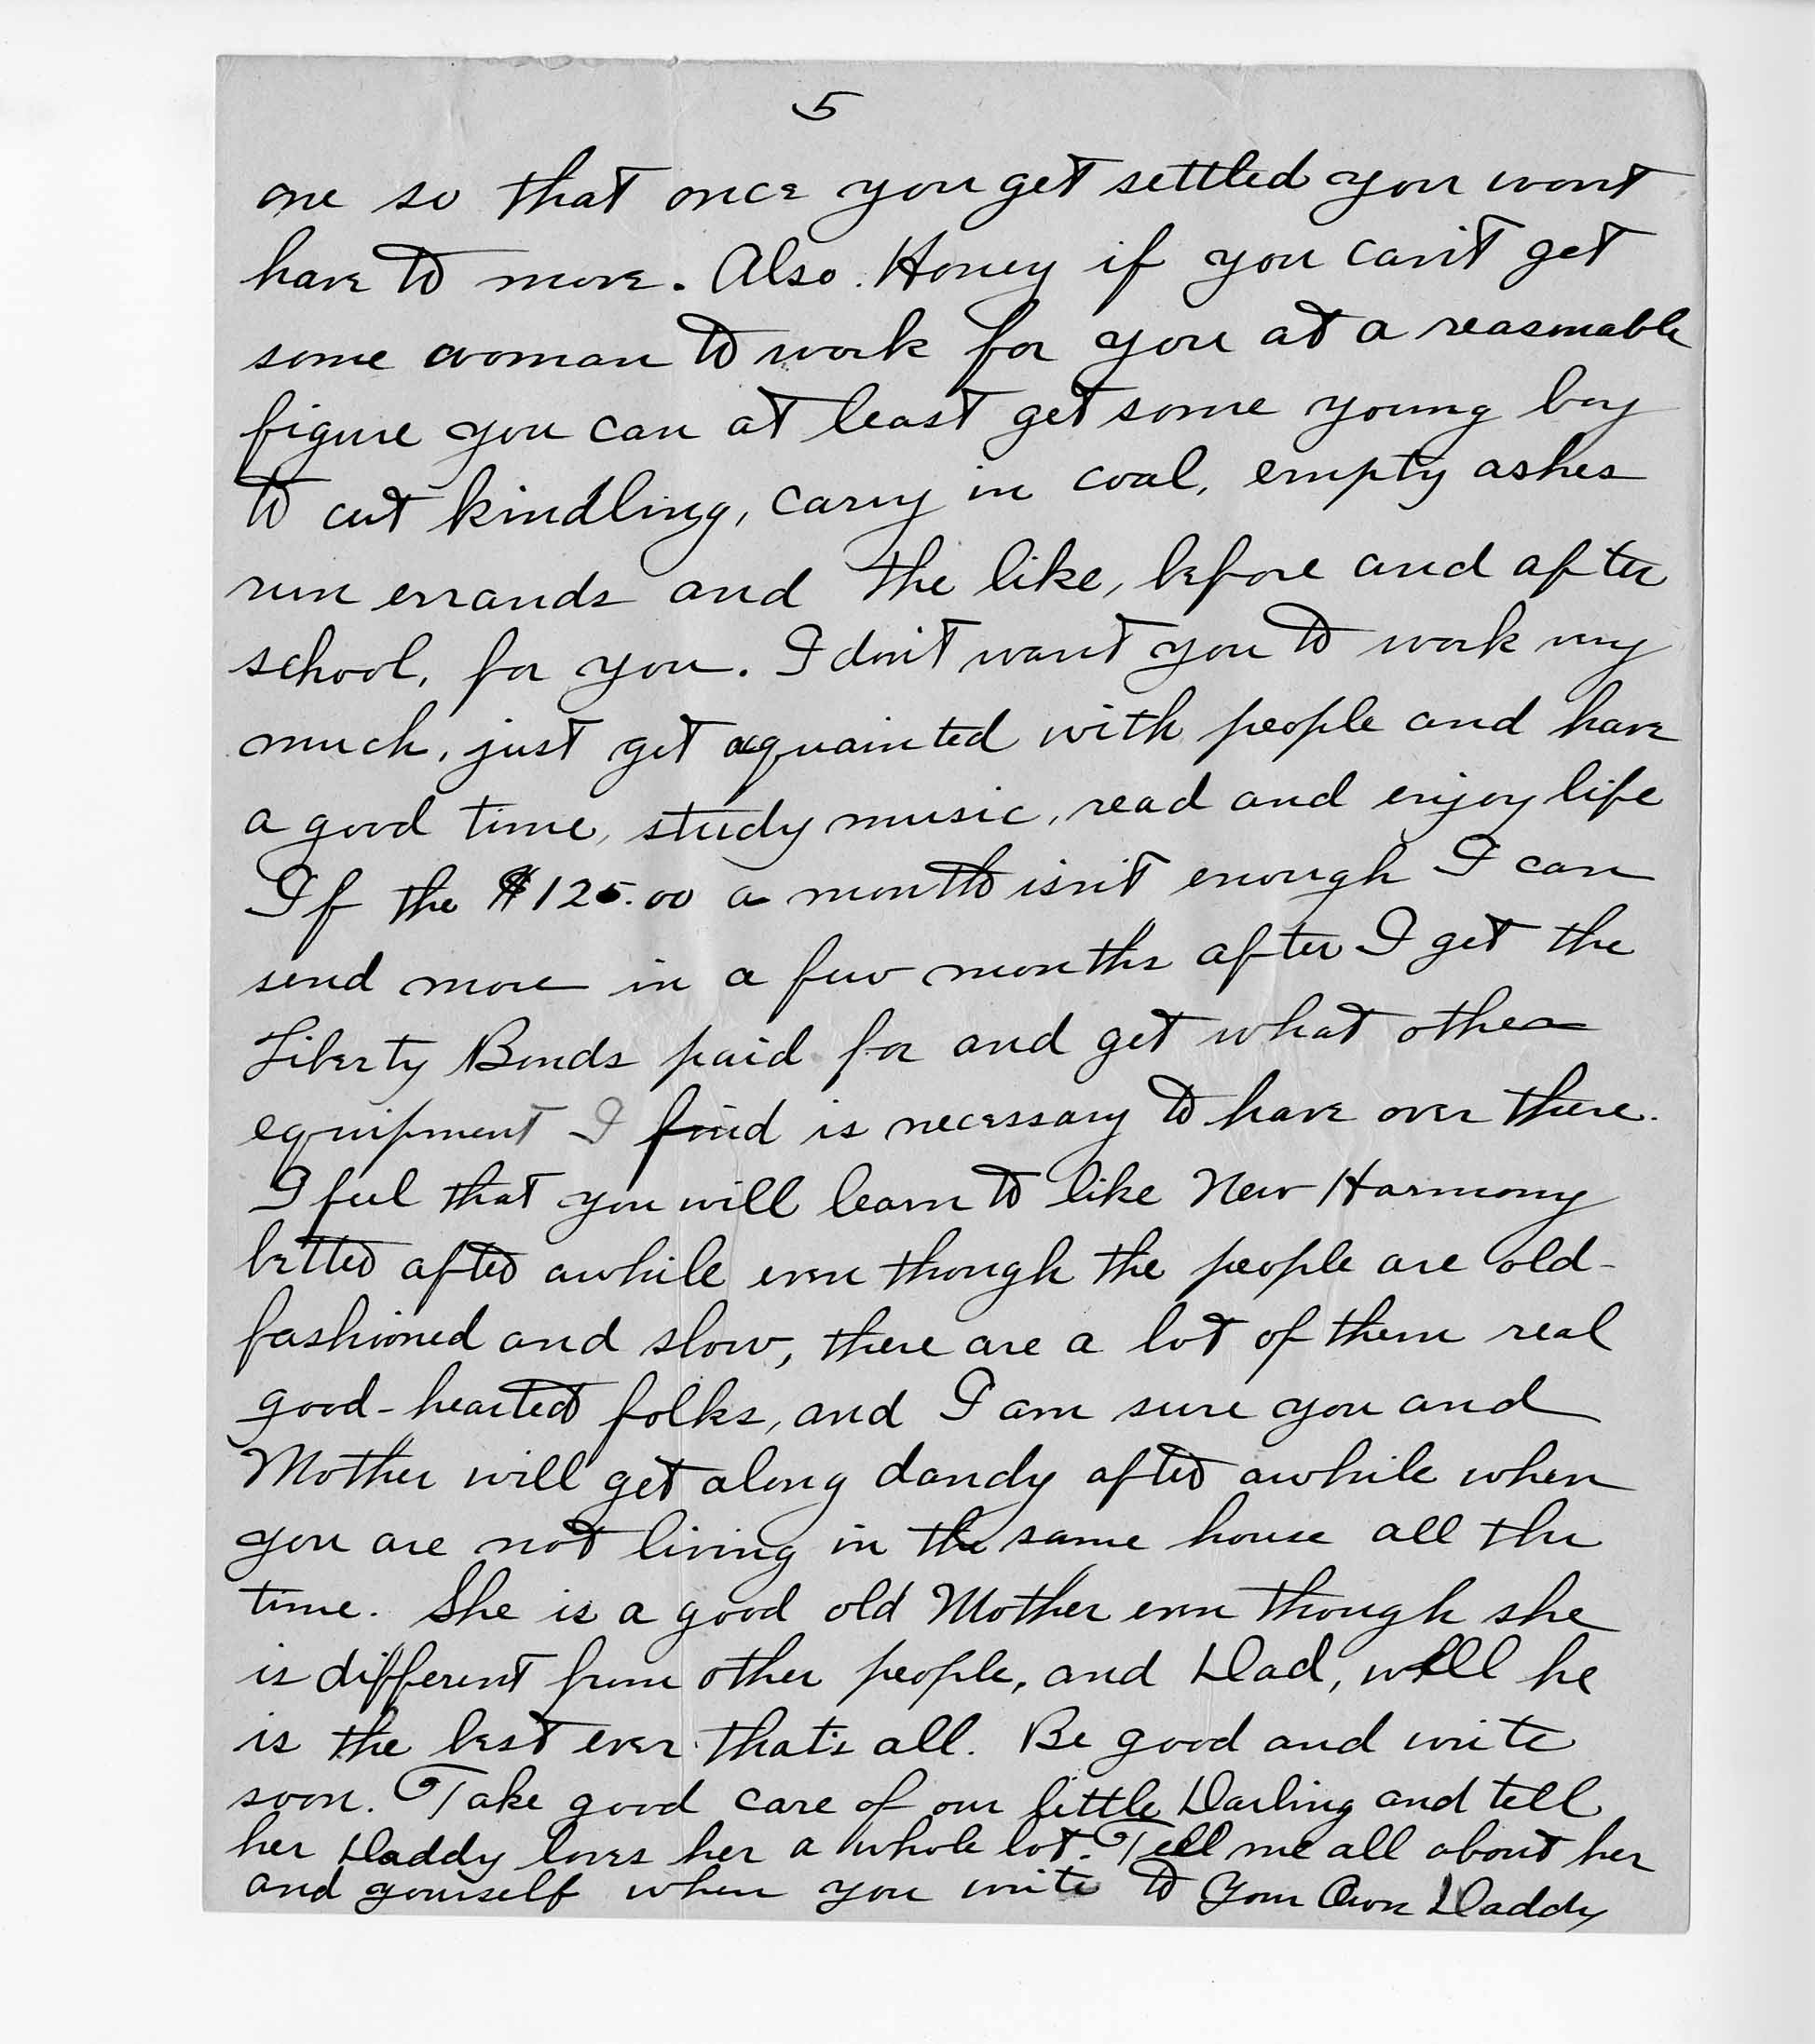 5
one so that once you get settled you wont
have to move. Also Honey if you can't get
some woman to work for you at a reasonable
figure you can at least get some young boy
to cut kindling, carry in coal, empty ashes
run errands and the like, before and after
school, for you. I don't want you to work very
much, just get aquainted with people and have
a good time, study music, read and enjoy life
If the $125.00 a month isn't enough I can
send more in a few months after I get the
Liberty Bonds paid for and get what other
equipment I find is necessary to have over there.
I feel that you will learn to like New Harmony
better after awhile even though the people are old-
fashioned and slow, there are a lot of them real
good-hearted folks, and I am sure you and
Mother will get along dandy after awhile when
you are not living in the same house all the
time. She is a good old Mother even though she
is different from other people, and Dad, well he
is the best ever that's all. Be good and write
soon. Take good care of our little Darling and tell
her Daddy loves her a whole lot. Tell me all about her
and yourself when you write to Your Own Daddy